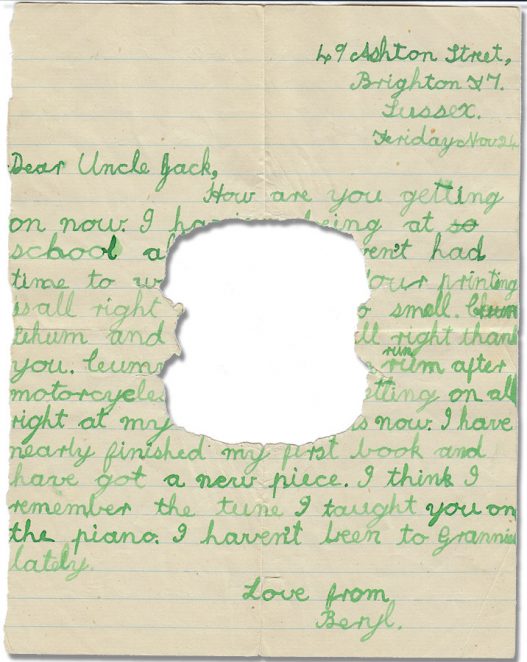 49 Ashton Street,
Brighton 7.
Sussex.
Friday Nov 24
Dear Uncle Jack,
How are you getting
on now. I being at so
school had
time to our printing
is all right smell.
and all right thank
you. rum after
rum
motorcycles getting on all
right at my now. I have
nearly finished my first book and
have got a new piece. I think I
remember the tune I taught you on
the piano. I haven't been to Grannies
lately.
Love from
Beryl.